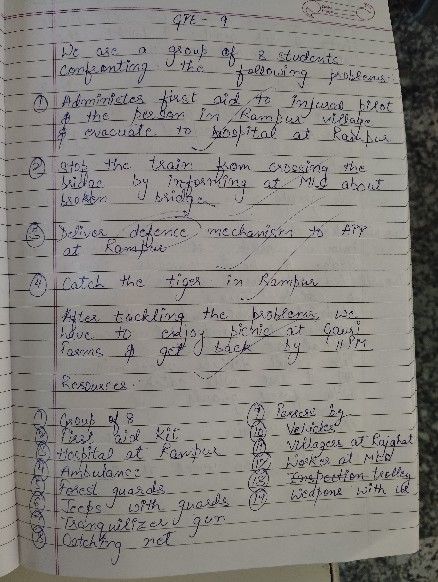 GPE - 9
We are a group of 8 students
confronting the following problems:
① Administer first aid to injured pilot
& the person in Rampur village
& evacuate to hospital at Rampur
② Stop the train from crossing the
bridge by informing at MLC about
broken bridge
③ Deliver defence mechanism to
at Rampur
④ Catch the tiger in Rampur
After tackling the problems, we
have to enjoy picnic at Gauri
Farms & get back by PM
Resources:
① Group of 8
② First aid kit
③ Hospital at Rampur
④ Ambulance
⑤ Forest guards
⑥ Jeeps with guards
⑦ Tranquilizer gun
⑧ Catching net
⑨ by
⑩ Vehicles
⑪ Villagers at Rajghat
⑫ Worker at MLC
⑬ Inspection trolley
⑭ Weapons with us